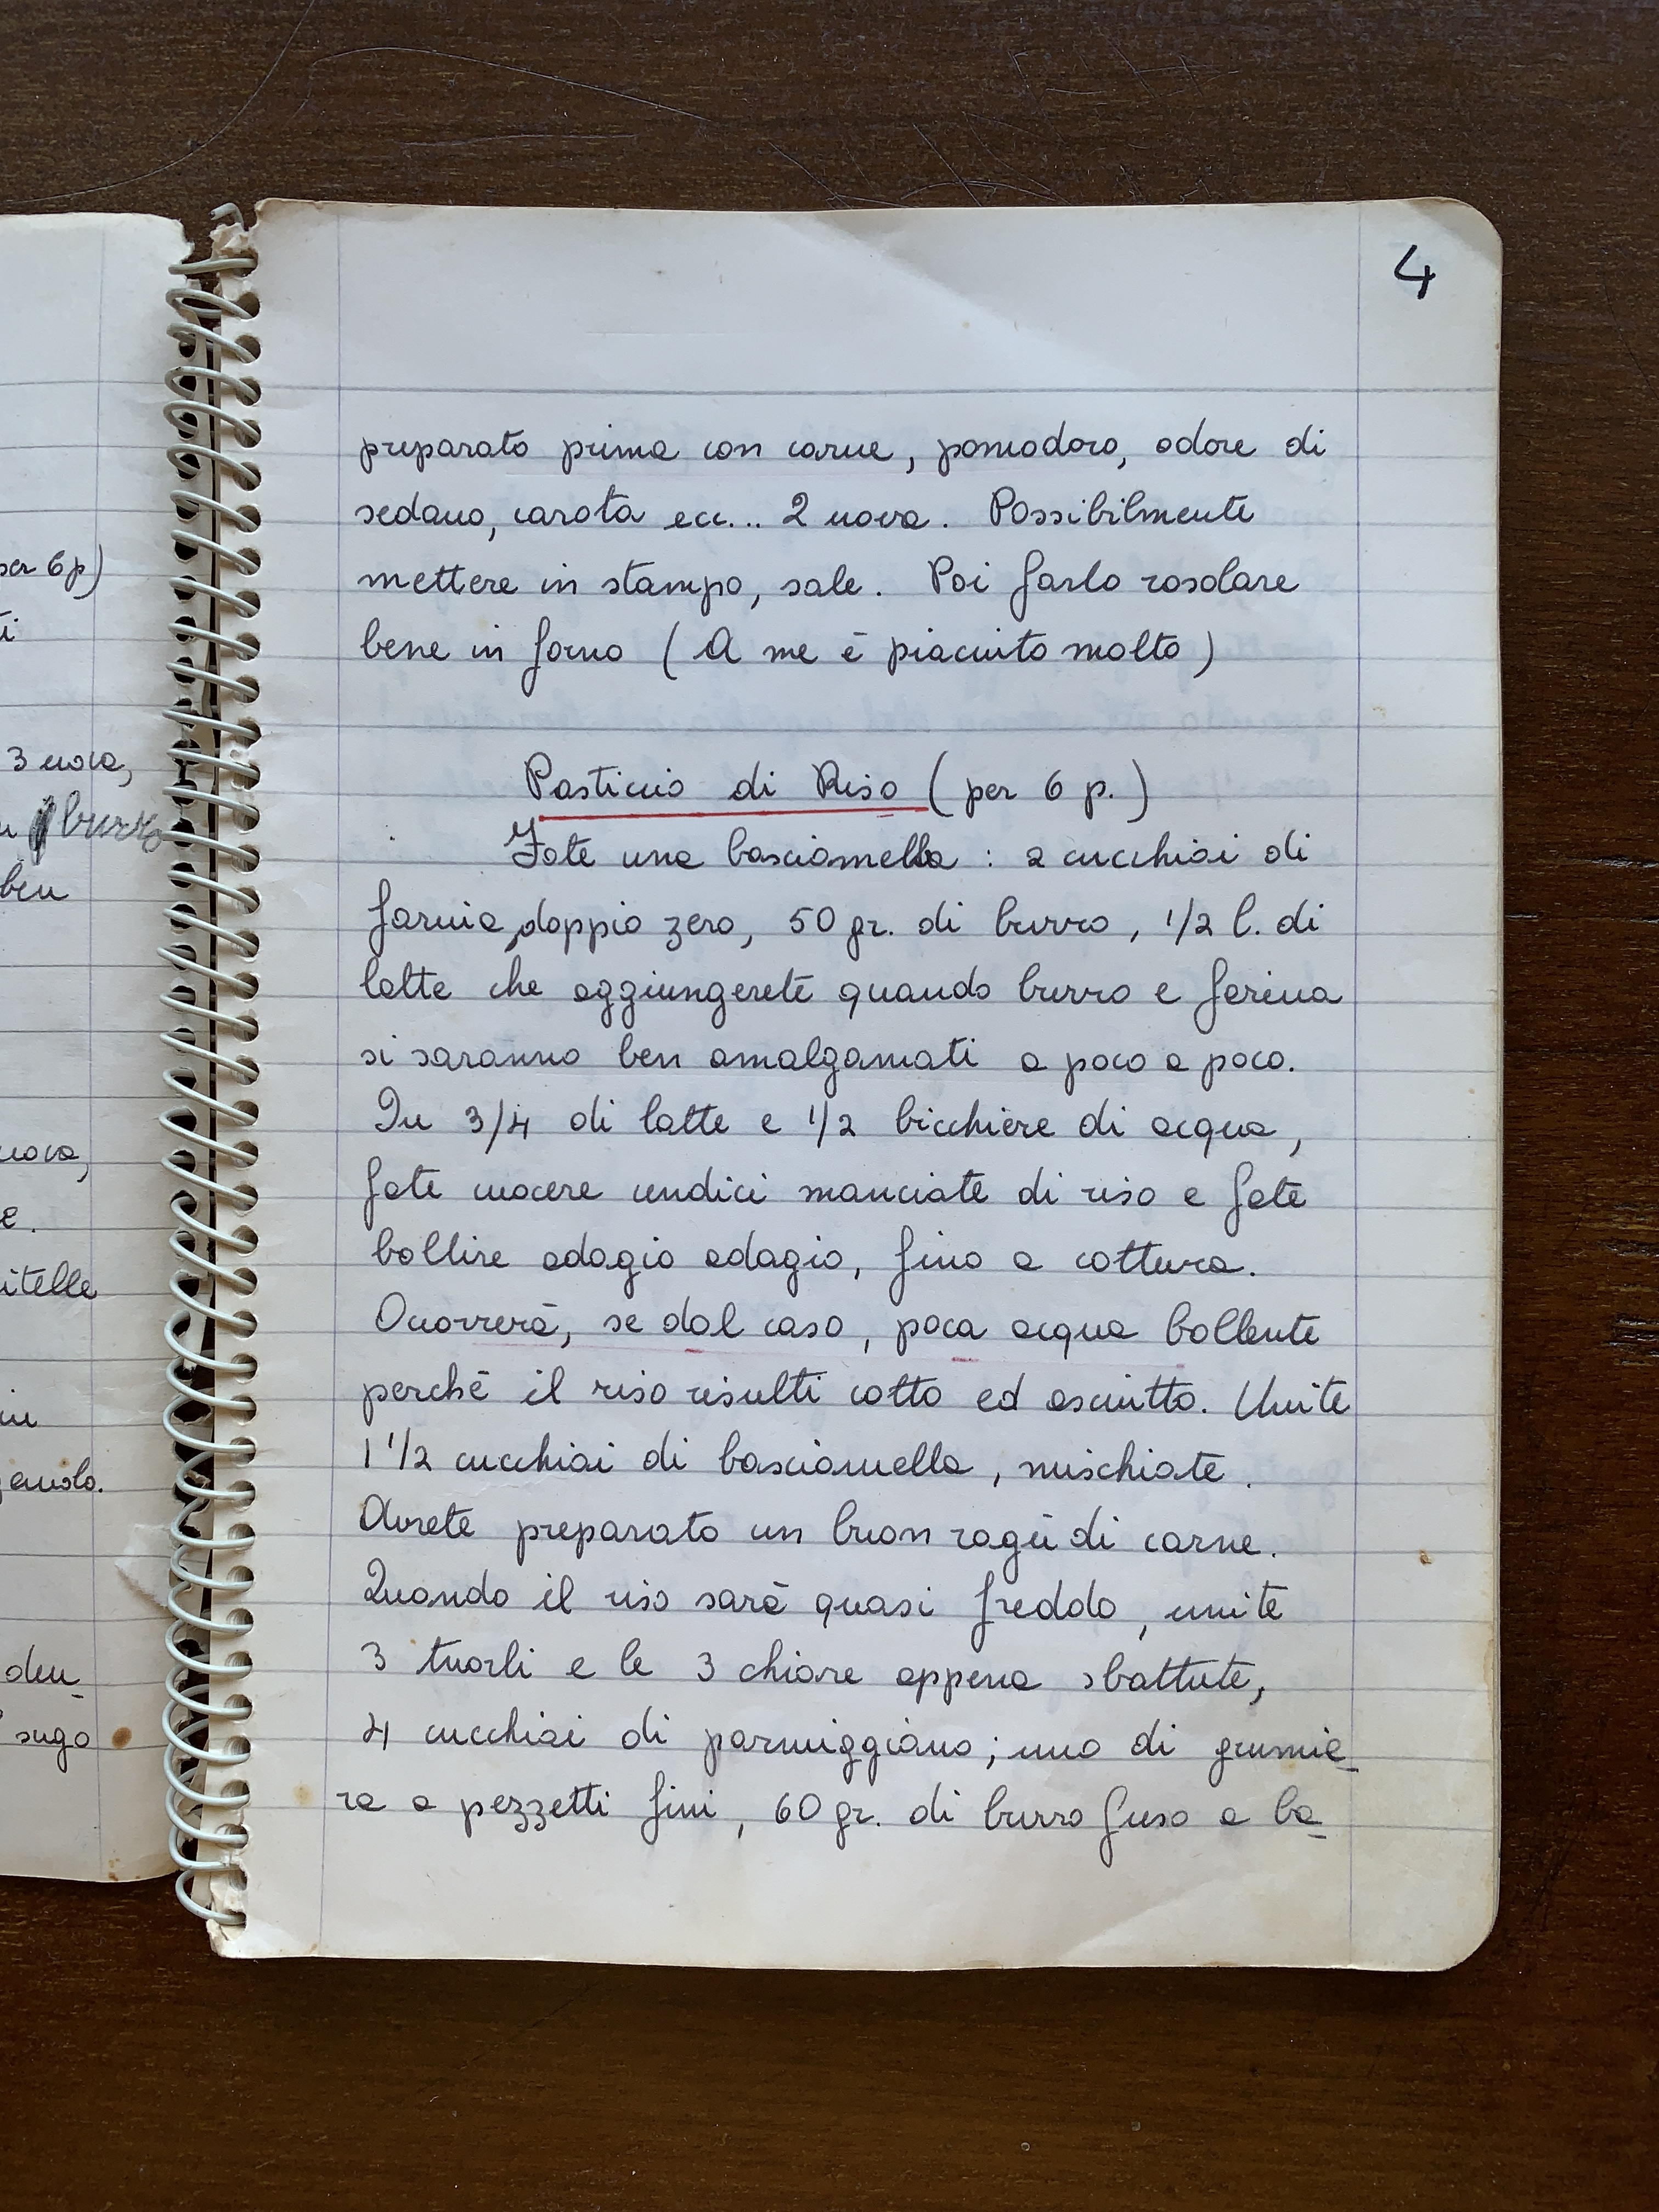 4
preparato prima con carne, pomodoro, odore di
sedano, carota ecc... 2 uova. Possibilmente
mettere in stampo, sale. Poi farlo rosolare
bene in forno (A me è piaciuto molto)
Pasticcio di Riso (per 6 p.)
Fate una basciamella : 2 cucchiai di
farnia, doppio zero, 50 gr. di burro, 1/2 l. di
latte che aggiungerete quando burro e farina
si saranno ben amalgamati a poco a poco.
In 3/4 di latte e 1/2 bicchiere di acqua,
fate cuocere undici manciate di riso e fate
bollire adagio adagio, fino a cottura.
Ocorrerà, se dal caso, poca acqua bollente
perchè il riso risulti cotto ed asciutto. Unite
1 1/2 cucchiai di basciamella, mischiate.
Avrete preparato un buon ragù di carne.
Quando il riso sarà quasi freddo, unite
3 tuorli e le 3 chiare appena sbattute,
4 cucchiai di parmiggiano; uno di grumie_
ra a pezzetti fini, 60 gr. di burro fuso a ba_
per 6 p)
ti
3 uova,
burro
ben
uova,
e.
itelle
in
den_
sugo